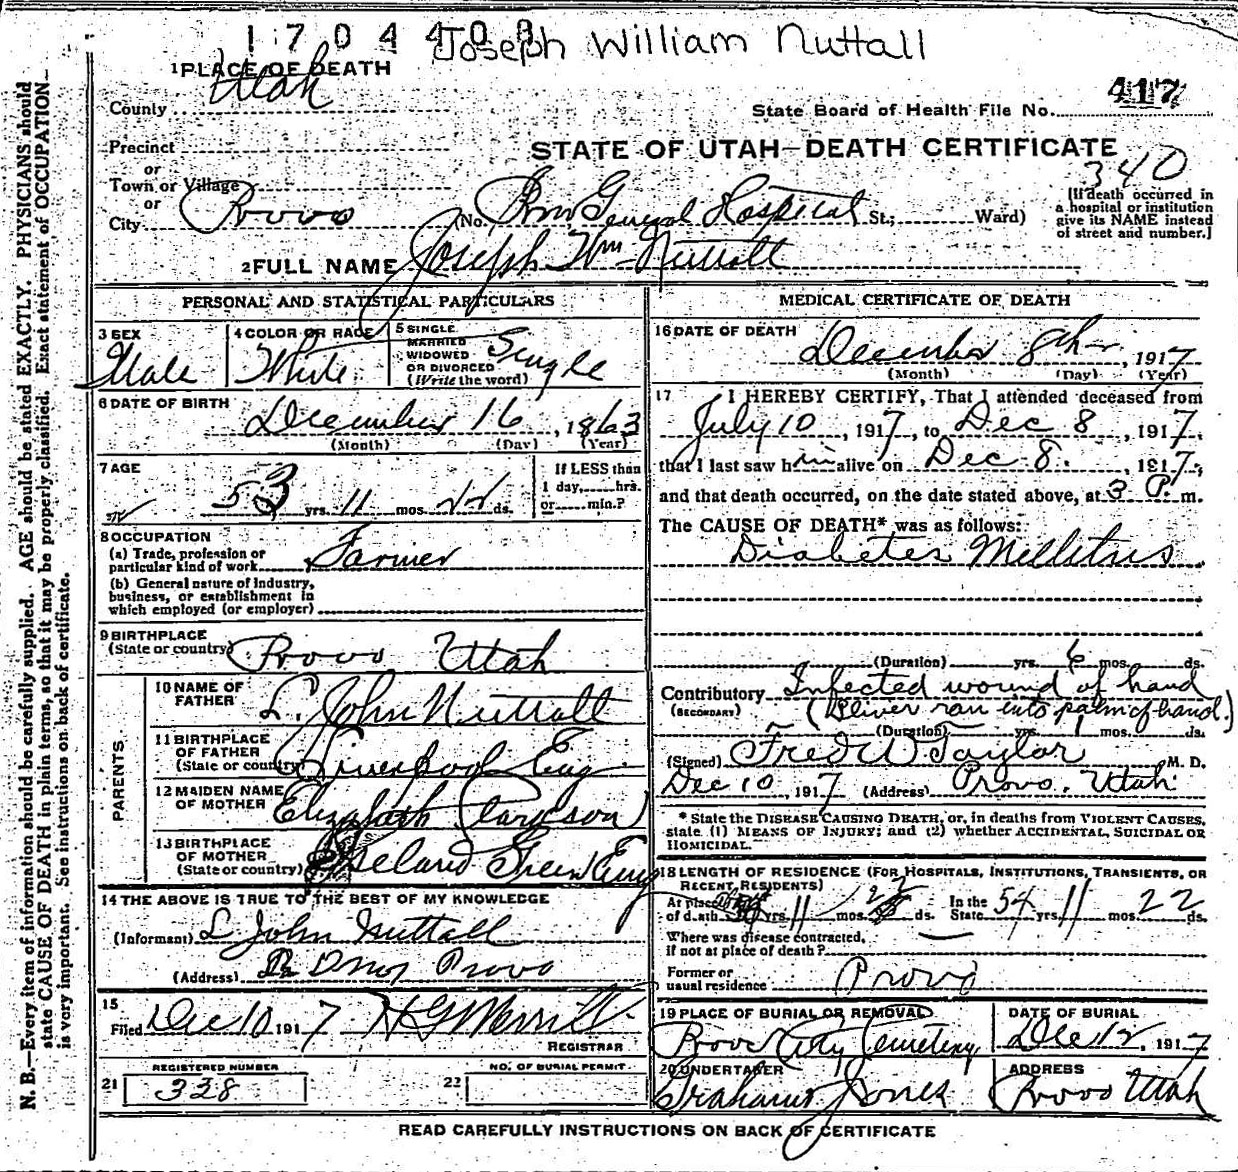 1704408 Joseph William Nuttall
1 PLACE OF DEATH
County Utah
417
State Board of Health File No.
Precinct
STATE OF UTAH—DEATH CERTIFICATE
or
Town or Village
340
or
City Provo (No. Prov General Hospital St.; Ward)
[If death occurred in
a hospital or institution
give its NAME instead
of street and number.]
2 FULL NAME Joseph Wm Nuttall
PERSONAL AND STATISTICAL PARTICULARS
3 SEX
Male
4 COLOR OR RACE
White
5 SINGLE
MARRIED
WIDOWED
OR DIVORCED
(Write the word)
Single
6 DATE OF BIRTH
December 16, 1863
(Month) (Day) (Year)
7 AGE
53 yrs. 11 mos. 22 ds.
If LESS than
1 day, hrs.
or min.?
8 OCCUPATION
(a) Trade, profession or
particular kind of work Farmer
(b) General nature of Industry,
business, or establishment in
which employed (or employer)
9 BIRTHPLACE
(State or country) Provo Utah
PARENTS
10 NAME OF
FATHER L. John Nuttall
11 BIRTHPLACE
OF FATHER
(State or country) Liverpool Eng
12 MAIDEN NAME
OF MOTHER Elizabeth Clarkson
13 BIRTHPLACE
OF MOTHER
(State or country) Green Eng
14 THE ABOVE IS TRUE TO THE BEST OF MY KNOWLEDGE
(Informant) L John Nuttall
(Address) Provo
15
Filed Dec 10 1917 H G Merrill
REGISTRAR
REGISTERED NUMBER
21 338
NO. OF BURIAL PERMIT
22
MEDICAL CERTIFICATE OF DEATH
16 DATE OF DEATH
December 8th, 1917
(Month) (Day) (Year)
17 I HEREBY CERTIFY, That I attended deceased from
July 10, 1917, to Dec 8, 1917,
that I last saw him alive on Dec 8., 1917,
and that death occurred, on the date stated above, at 3 P. m.
The CAUSE OF DEATH* was as follows:
Diabetes Mellitus
(Duration) yrs. 6 mos. ds.
Contributory Infected wound of hand
(SECONDARY) (Sliver ran into palm of hand.)
(Duration) yrs. 1 mos. ds.
(Signed) Fred W Taylor M. D.
Dec 10, 1917 (Address) Provo, Utah
* State the DISEASE CAUSING DEATH, or, in deaths from VIOLENT CAUSES,
state (1) MEANS OF INJURY; and (2) whether ACCIDENTAL, SUICIDAL OR
HOMICIDAL.
18 LENGTH OF RESIDENCE (FOR HOSPITALS, INSTITUTIONS, TRANSIENTS, OR
RECENT RESIDENTS)
At place
of death yrs. 11 mos. 22 ds.
In the
State 54 yrs. 11 mos. 22 ds.
Where was disease contracted,
if not at place of death? —
Former or
usual residence Provo
19 PLACE OF BURIAL OR REMOVAL
Provo City Cemetery
DATE OF BURIAL
Dec 12, 1917
20 UNDERTAKER
Jones
ADDRESS
Provo Utah
READ CAREFULLY INSTRUCTIONS ON BACK OF CERTIFICATE
N. B.—Every item of information should be carefully supplied. AGE should be stated EXACTLY. PHYSICIANS should
state CAUSE OF DEATH in plain terms, so that it may be properly classified. Exact statement of OCCUPATION
is very important. See instructions on back of certificate.